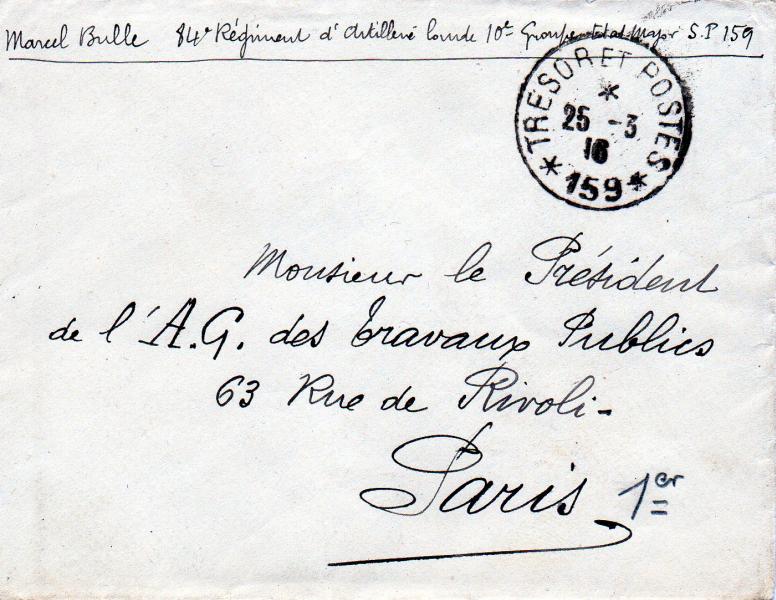 Marcel Bulle 84e Régiment d'Artillerie lourde 10e Groupe Etat Major S.P 159
TRESOR ET POSTES
25 -3
16
* 159 *
Monsieur le Président
de l'A.G. des Travaux Publics
63 Rue de Rivoli-
Paris 1er